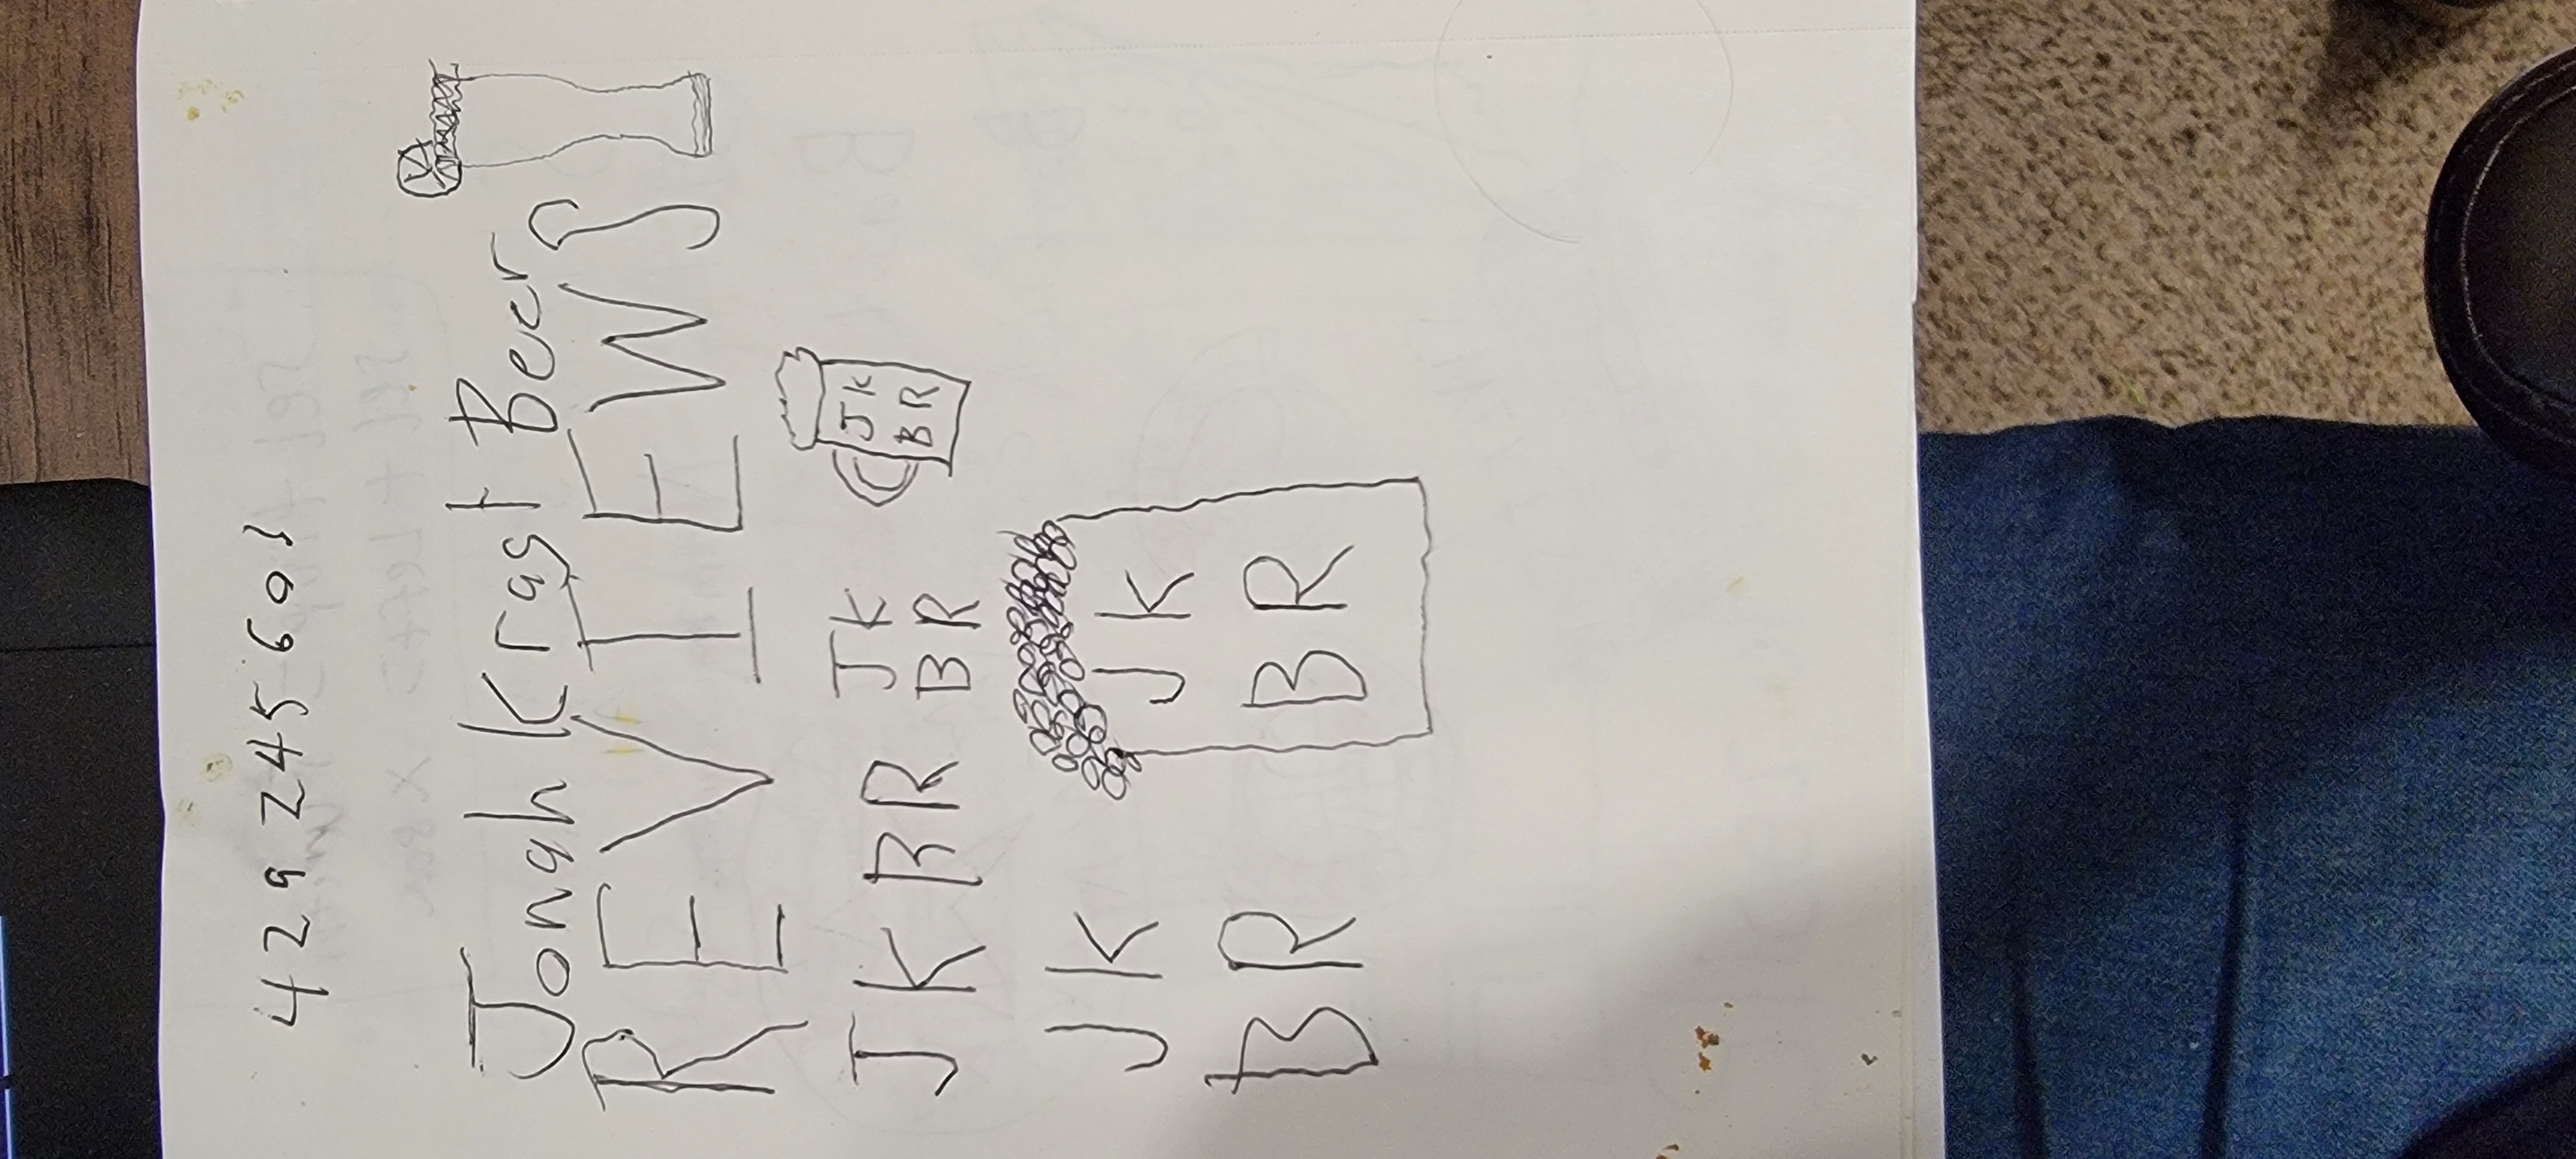 429 245 603
Jonah Krast Beer
REVIEWS
JKBR
JK
BR
JK
BR
JK
BR
JK
BR